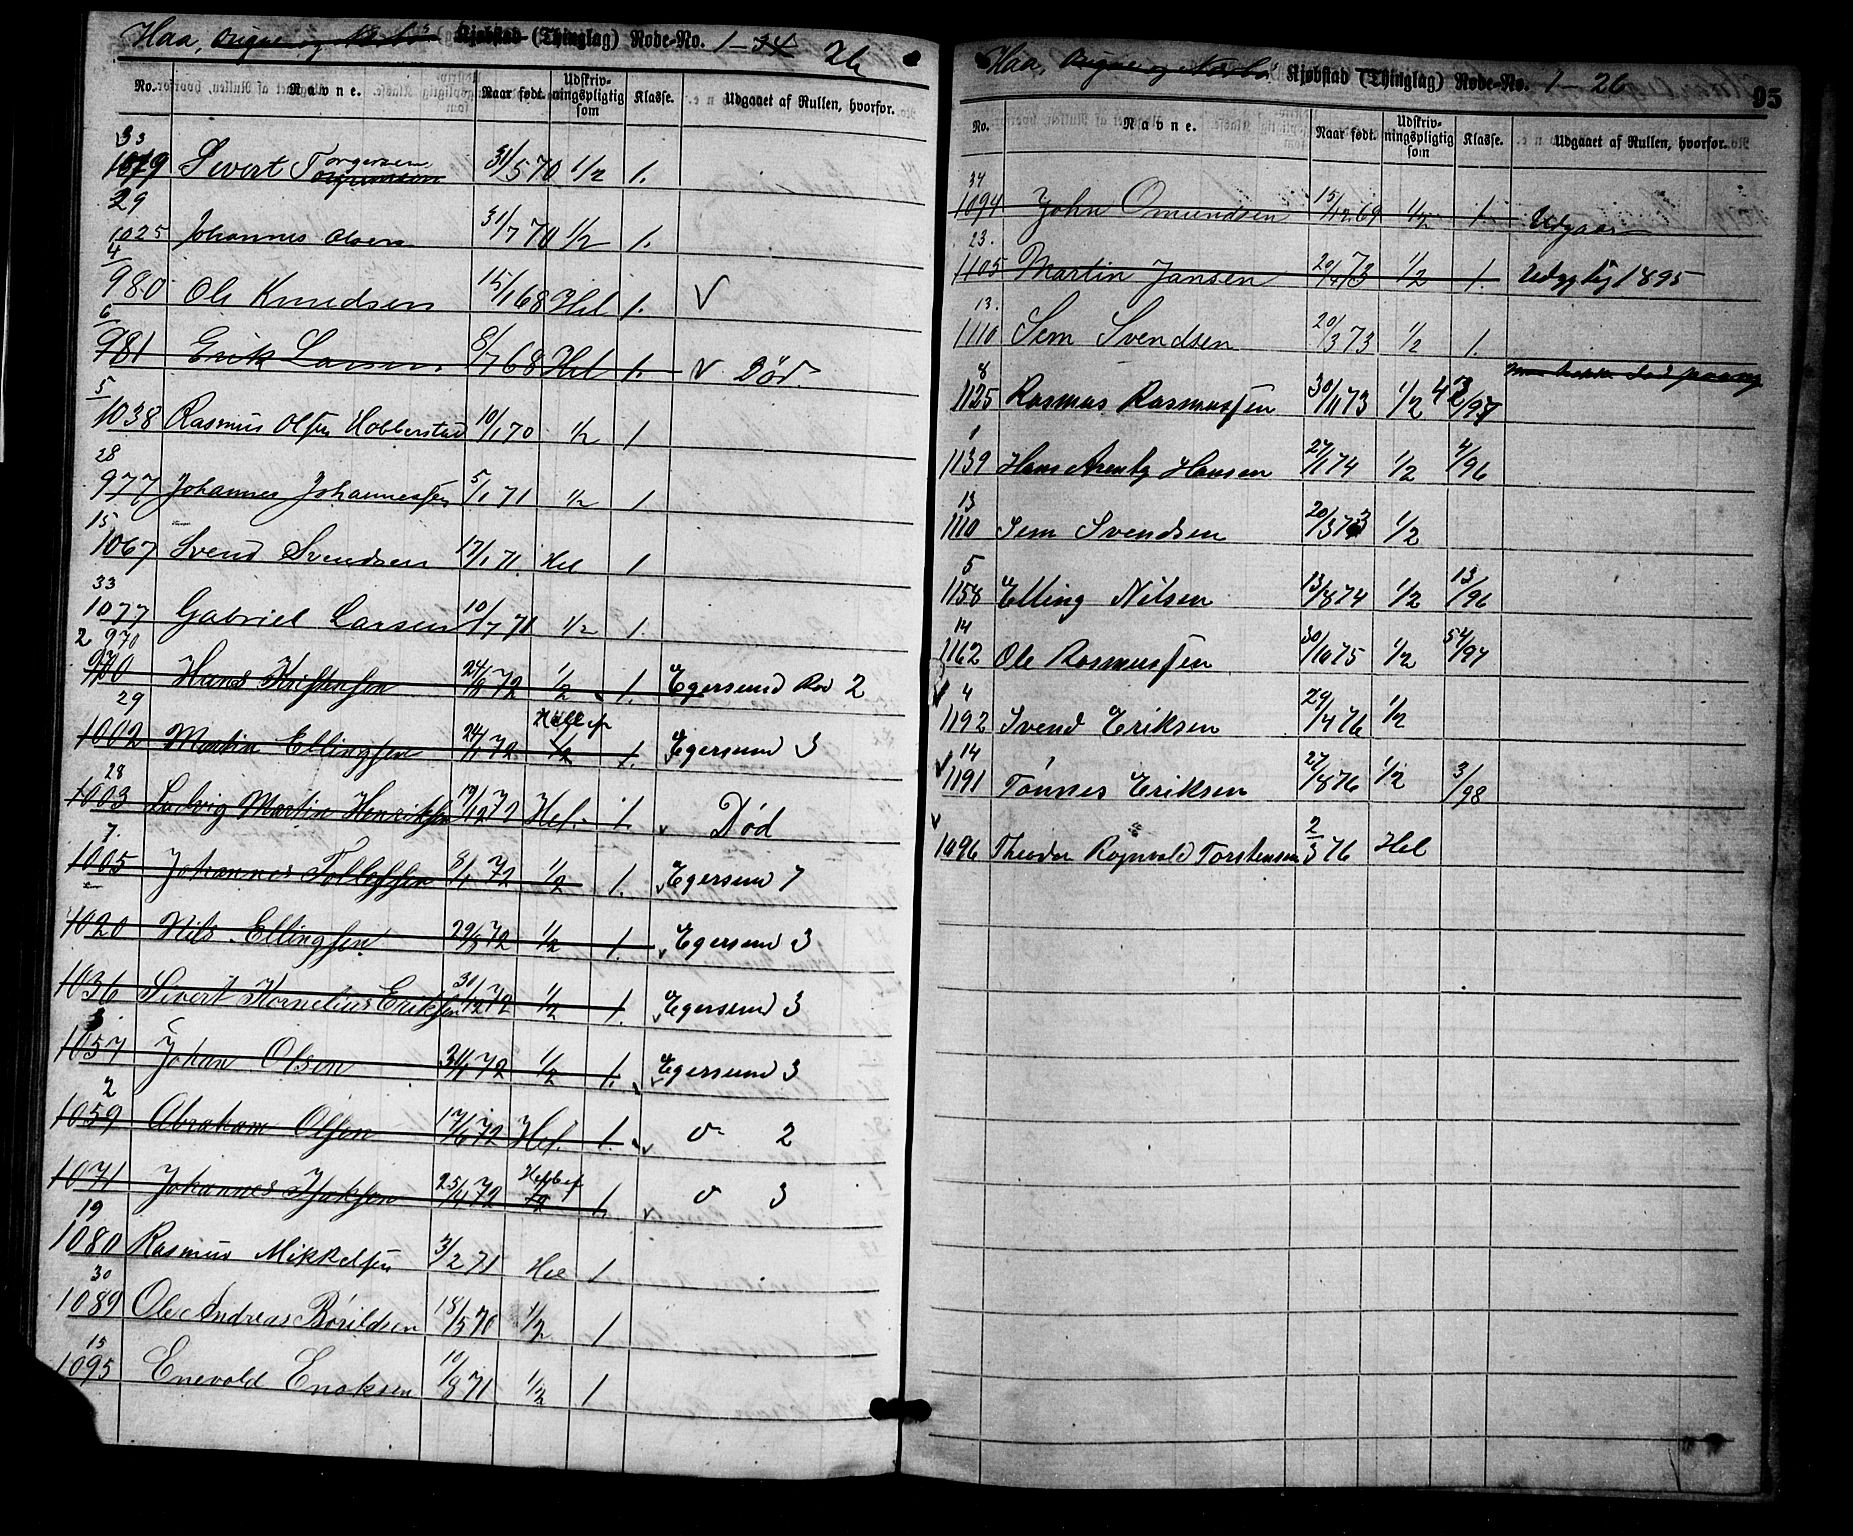 Haa, Ougne og Nærbø Kjøbstad (Thinglag) Rode-No. 1-34 26
No. Navne. Naar født. Udskrivningspligtig som Klasse. Udgaaet af Rullen, hvorfor.
33
1079 Sivert Torgersen 31/5 70 1/2 1.
29
1025 Johannes Olsen 31/7 70 1/2 1.
4
980 Ole Knudsen 15/1 68 Hel 1. V
6
981 Erik Larsen 8/7 68 Hel 1. V Død.
5
1038 Rasmus Olsen Hobberstad 10/1 70 1/2 1
28
977 Johannes Johannessen 5/1 71 1/2 1
15
1067 Svend Svendsen 17/1 71. Hel 1
33
1077 Gabriel Larsen 10/7 71 1/2 1.
2 970
Hans Kristensen 24/8 72 1/2 1. Egersund Rod 2
29
1002 Martin Ellingsen 24/1 72 1/2 1. Egersund 3
28
1003 Ludvig Martin Henriksen 19/12 72 Hel. 1 Død
7.
1005 Johannes Tollefsen 8/1 72 1/2 1. Egersund 7
1020 Nils Ellingsen 29/8 72 1/2 1. Egersund 3
1036 Sivert Kornelius Eriksen 30/12 72 1/2 1. Egersund 3
1057 Johan Olsen 31/1 72 1/2 1. Egersund 3
2
1059 Abraham Olsen 17/6 72 Hel. 1. 2
1071 Johannes Isaksen 25/11 72 1/2 1. 3
19
1080 Rasmus Mikkelsen 3/2 71 Hel 1
30
1089 Ole Andreas Børildsen 18/5 70 1/2 1
15
1095 Enevold Enoksen 10/9 71 1/2 1
Haa, Ougne og Nærbø Kjøbstad (Thinglag) Rode-No. 1-26 95
No. Navne. Naar født. Udskrivningspligtig som Klasse. Udgaaet af Rullen, hvorfor.
34
1094 John Omundsen 15/12 69 1/2 1. Udgaar
23.
1105 Martin Jansen 20/4 73 1/2 1. 1895
13.
1110 Sem Svendsen 20/3 73 1/2 1.
8
1125 Rasmus Rasmussen 30/11 73 1/2
1
1139 Hans Arentz Hansen 27/1 74 1/2 4/96
13
1110 Sem Svendsen 20/3 73 1/2
5
1158 Elling Nilsen 13/8 74 1/2 13/96
14
1162 Ole Rasmussen 30/10 75 1/2 54/97
4
1192 Svend Eriksen 29/4 76 1/2
14
1191 Tønnes Eriksen 27/8 76 1/2 3/98
1096 Theodor Ragnvald Torstensen 2/3 76 Hel